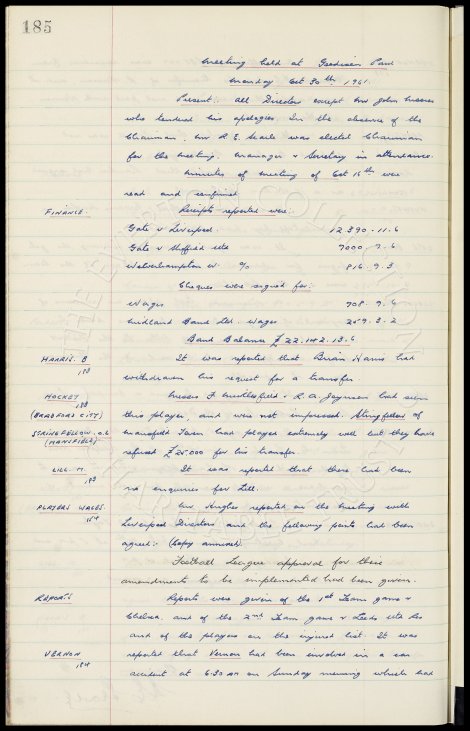 185
Meeting held at Goodison Park
Monday Oct 30th, 1961.
Present:- All Directors except Mr John
who tendered his apologies. In the absence of the
Chairman, Mr R. E. Searle was elected Chairman
for the meeting. Manager & Secretary in attendance.
Minutes of meeting of Oct 16th were
read and confirmed
FINANCE. Receipts reported were:
Gate v Liverpool. 12,390 . 11 . 6
Gate v Sheffield utd 7000 . 7 . 6
Wolverhampton W. % 816 . 9 . 3
Cheques were signed for:
Wages 708 . 9 . 6
Midland Bank Ltd. Wages 2 . 3 . 2
Bank Balance £ 22.142 . 13 . 6
HARRIS. B It was reported that Brian Harris had
183 withdrawn his request for a transfer
HOCKEY Messrs F. Micklesfield & R. A. Jayman had seen
183
(BRADFORD CITY) this player, and was not impressed. Stringfellow of
STRINGFELLOW. O.L Mansfield Town had played extremely well but they have
(MANSFIELD) refused £25,000 for his transfer.
LILL. M. It was reported that there had been
183 no enquiries for Lill.
PLAYERS WAGES. Mr Hughes reported on the meeting with
184 Liverpool Directors and the following points had been
agreed:- (Copy annexed).
Football League approval for these
amendments to be implemented had been given.
REPORTS Reports were given of the 1st Team game v
Chelsea, and of the 2nd Team game v Leeds utd Res
and of the players on the injured list. It was
VERNON reported that Vernon had been involved in a car
184 accident at 6.30 am on Sunday morning which had